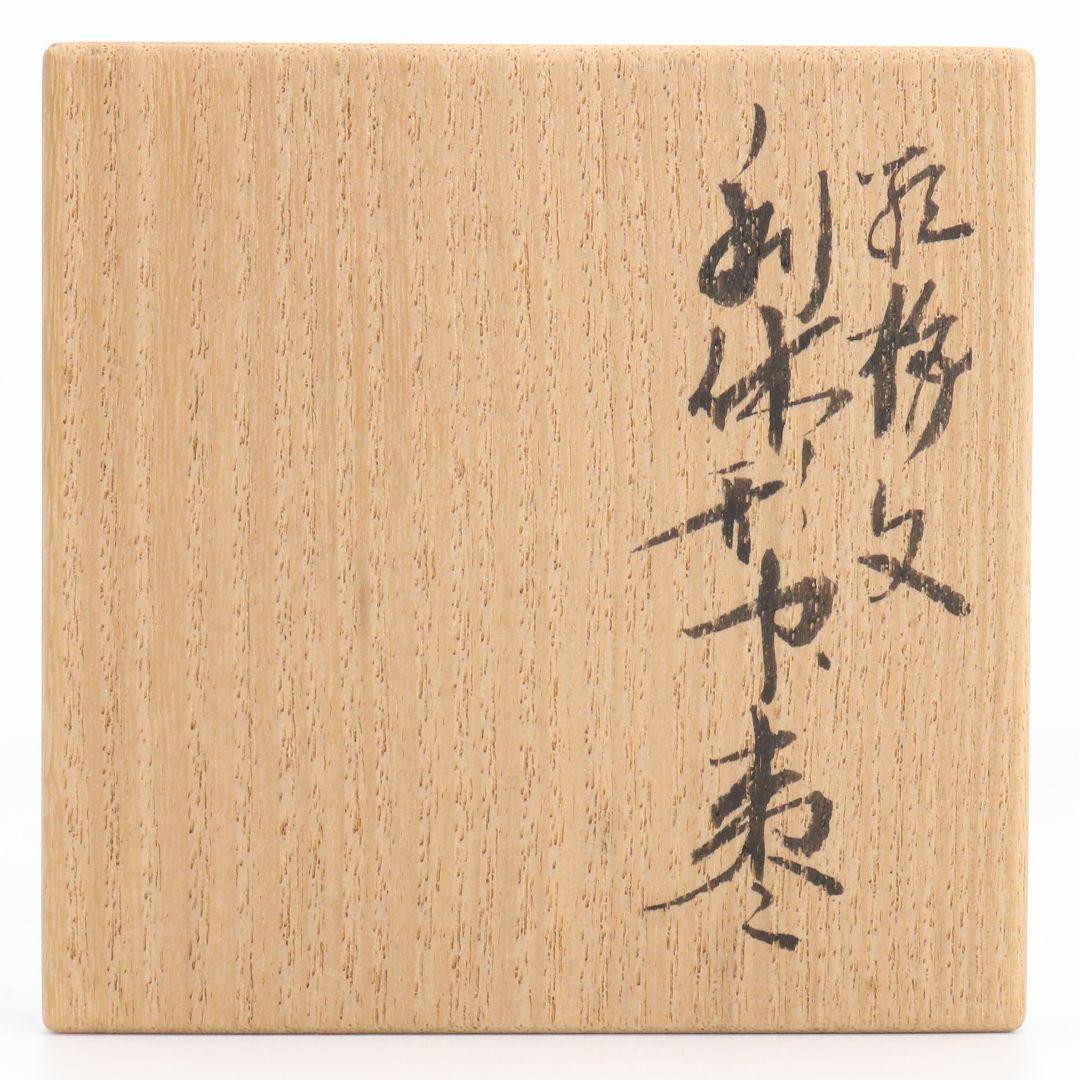 梅文
利休形中棗